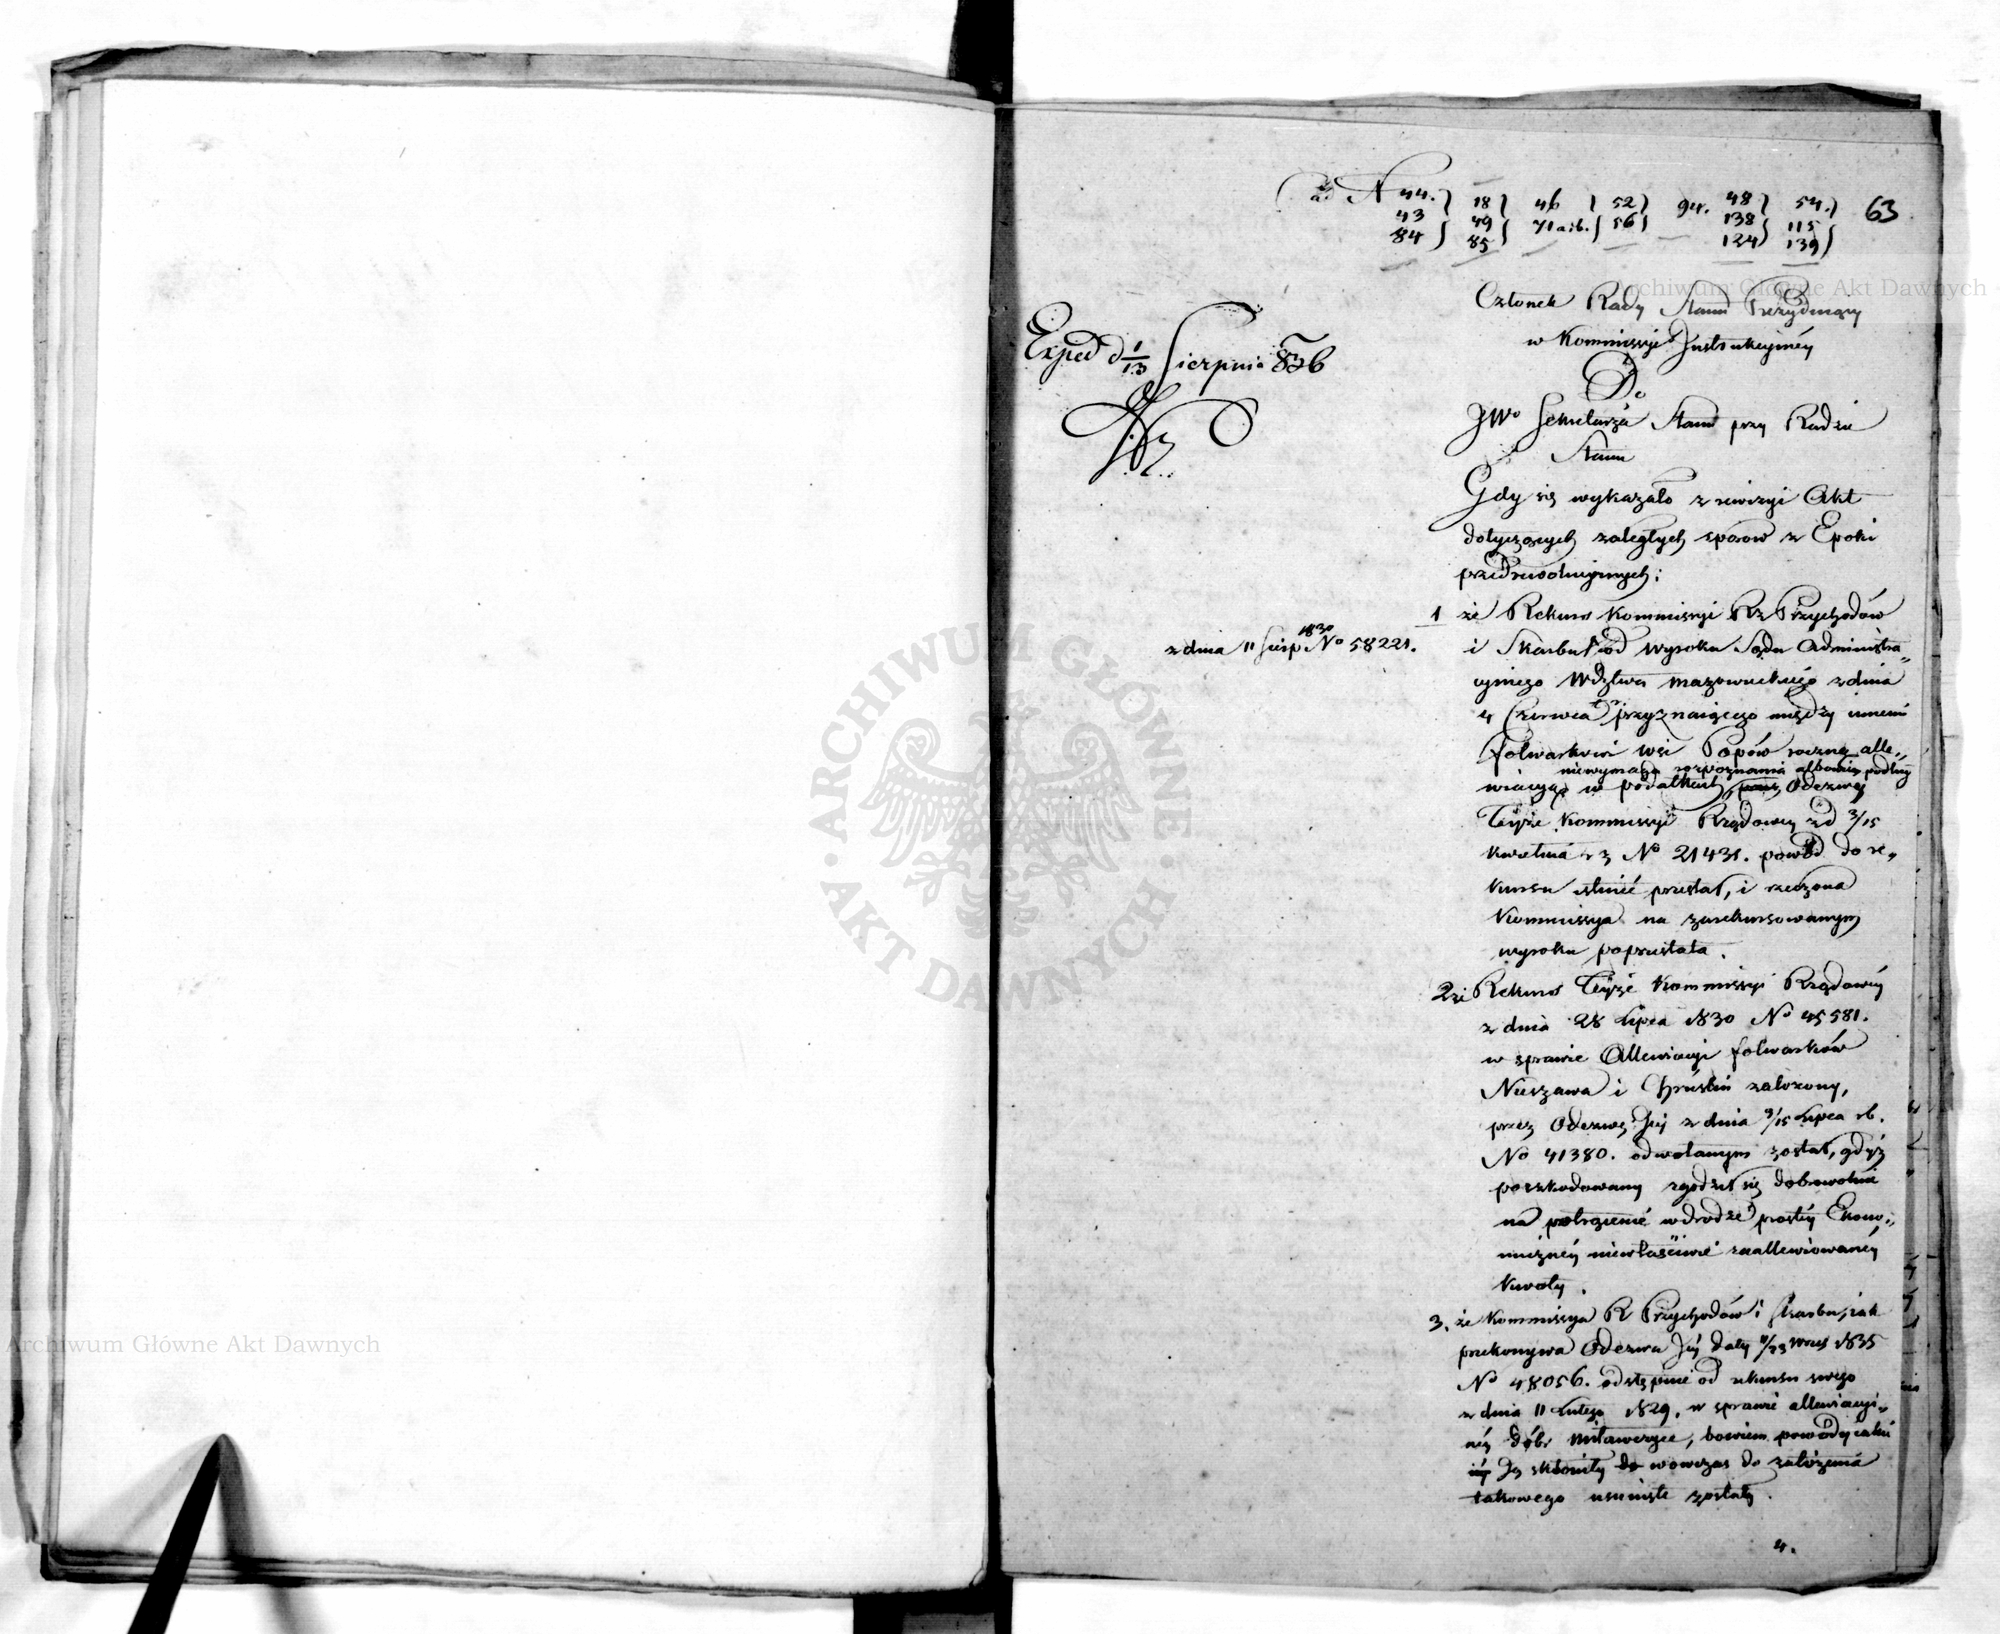 ad N 44. } 18 } 46 } 52 } 94. 48 } 54. } 63
43 49 71 a i b. 56 138 115
84 85 124 139
Członek Rady Stanu Prezydujący
w Kommissyi Instrukcyjnéy
Exped d 1/13 Sierpnia 836
Do
JWo Sekretarza Stanu przy Radzie
Stanu
Gdy się wykazało z rewizyi Akt
dotyczących zaległych sporow z Epoki
przedrewolucyinych:
1 że Rekurs Kommissyi Rz Przychodów
z dnia 11 Sierp 1830 No 58221.
i Skarbu od wyroku Sądu Administra„
cyjnego Wdztwa Mazowieckiego z dnia
4 Czerwca przyznaiącego między innemi
folwarkowi wsi Popów roczną alle„
niewymaga rozpoznania albowiem podług
wiacyą w podatkach, przez Odezwy
Teyże Kommissyi Rządowey z d 3/15
kwietnia r z No 21431. powód do re„
kursu istnieć przestał, i rzeczona
Kommissya na zarekursowanym
wyroku poprzestała.
2 że Rekurs Teyże Kommissyi Rządowéy
z dnia 28 Lipca 1830 No 45581.
w sprawie Allewiacyi folwarków
Nieszawa i Chruślin założony,
przez Odezwę Jéj z dnia 3/15 Lipca rb.
No 41380. odwołanym został, gdyż
poszkodowany zgodził się dobrowolnie
na potrącenie w drodze prostéy Ekono„
miczney niewłaściwie zaallewiowanéy
kwoty.
3. że Kommissya R Przychodów i Skarbu, jak
przekonywa Odezwa Jéj daty 11/23 Wrześ 1835
No 48056. odstępuie od rekursu swego
z dnia 11 Lutego 1829, w sprawie allewiacyi„
néy dóbr Miławczyce, bowiem powody iakie
Ją skłoniły do wowczas do założenia
takowego usunięte zostały.
4.
Archiwum Główne Akt Dawnych
Archiwum Główne Akt Dawnych
ARCHIWUM GŁÓWNE
AKT DAWNYCH